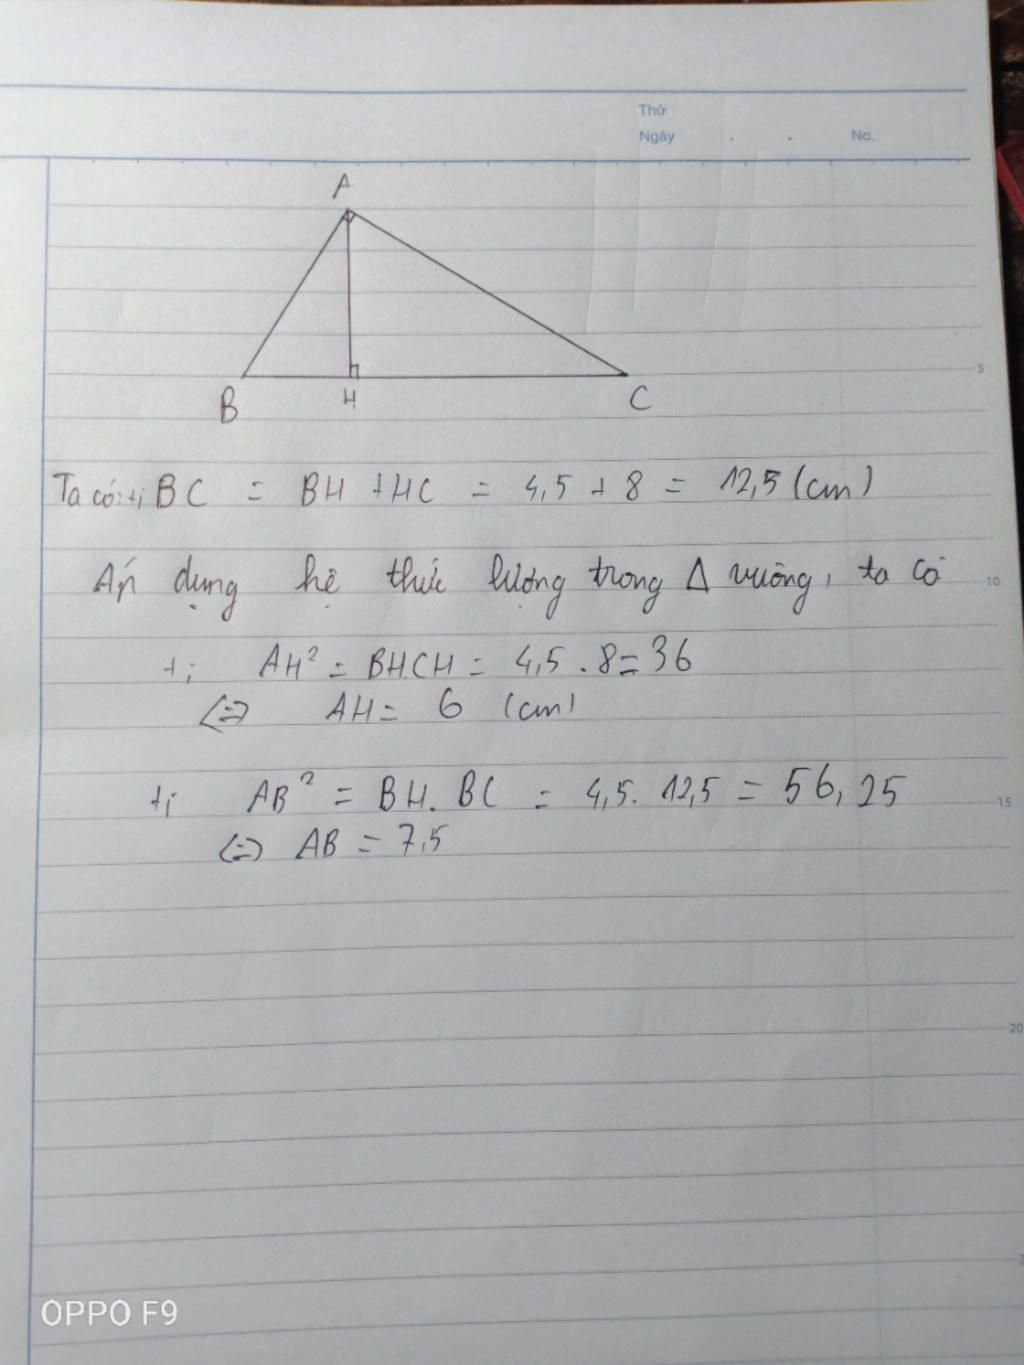 Thứ
Ngày . . No.
A
B H C
5
Ta có: +; BC = BH + HC = 4,5 + 8 = 12,5 (cm)
Áp dụng hệ thức lượng trong Δ vuông, ta có
10
+; AH² = BH.CH = 4,5 . 8 = 36
<=> AH = 6 (cm)
+; AB² = BH. BC = 4,5. 12,5 = 56,25
15
<=> AB = 7,5
20
OPPO F9